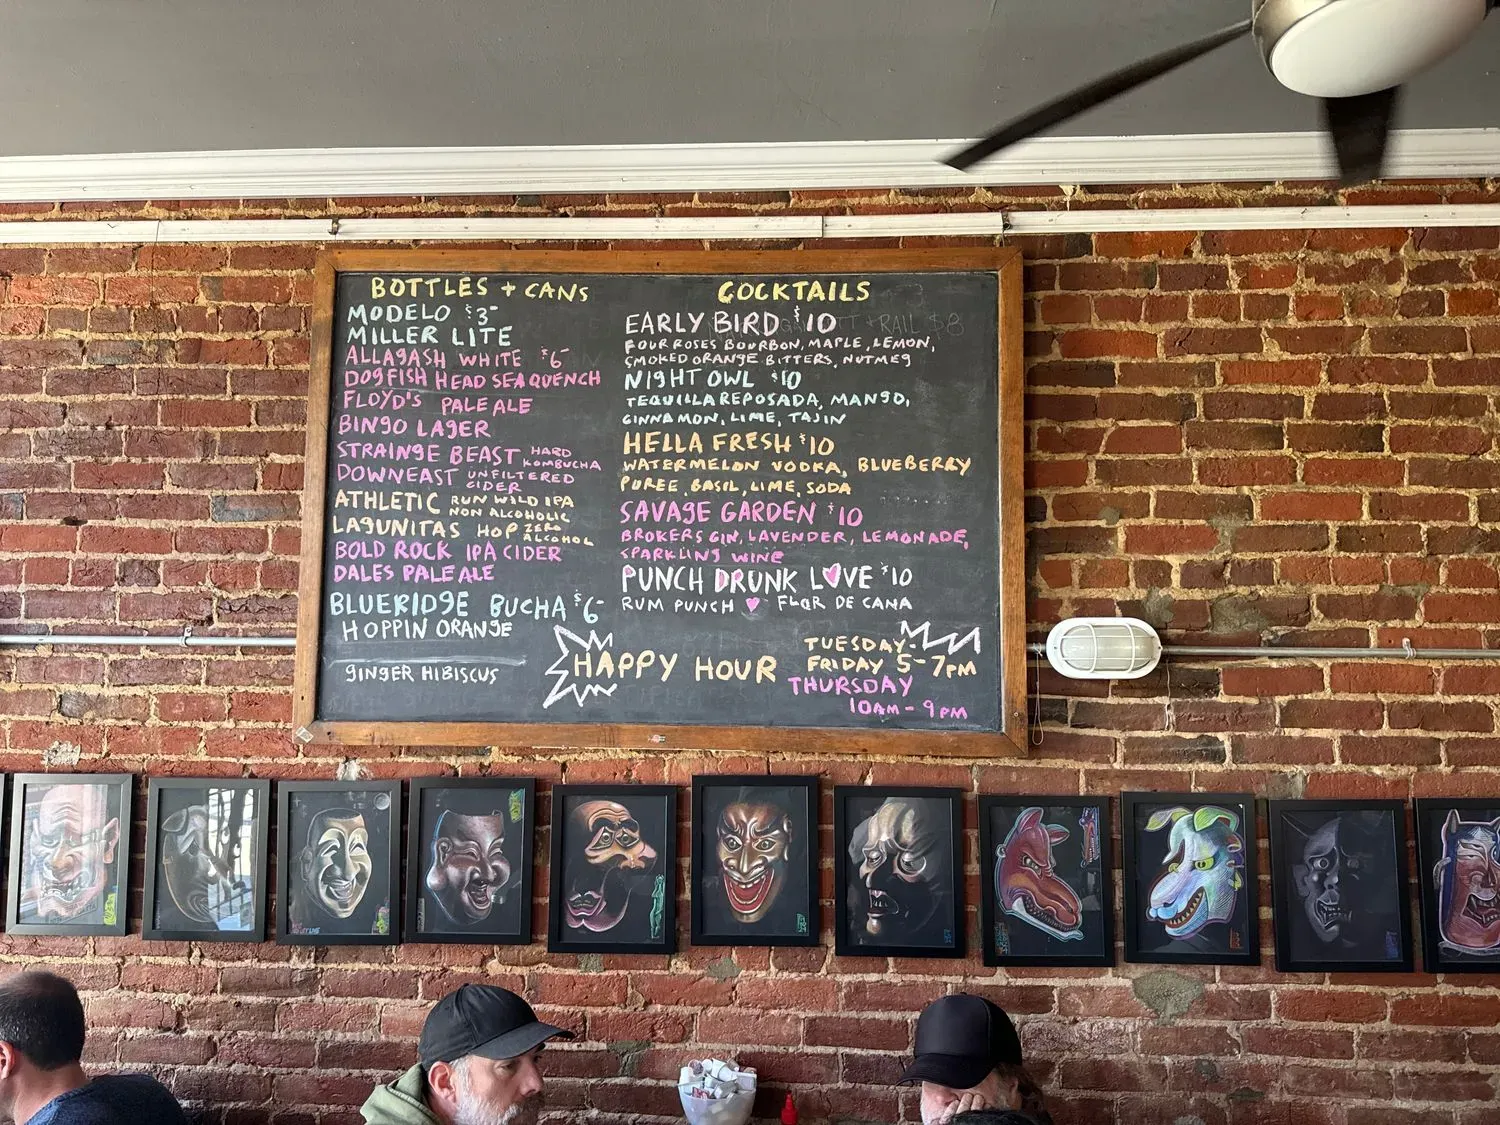 BOTTLES + CANS
MODELO $3-
MILLER LITE
ALLAGASH WHITE $6-
DOGFISH HEAD SEAQUENCH
FLOYD'S PALE ALE
BINGO LAGER
STRAINGE BEAST HARD KOMBUCHA
DOWNEAST UNFILTERED CIDER
ATHLETIC RUN WILD IPA NON ALCOHOLIC
LAGUNITAS HOP ZERO ALCOHOL
BOLD ROCK IPA CIDER
DALES PALE ALE
BLUERIDGE BUCHA $6-
HOPPIN ORANGE
GINGER HIBISCUS
COCKTAILS
EARLY BIRD $10
FOUR ROSES BOURBON, MAPLE, LEMON,
SMOKED ORANGE BITTERS, NUTMEG
NIGHT OWL $10
TEQUILLA REPOSADA, MANGO,
CINNAMON, LIME, TAJIN
HELLA FRESH $10
WATERMELON VODKA, BLUEBERRY
PUREE, BASIL, LIME, SODA
SAVAGE GARDEN $10
BROKERS GIN, LAVENDER, LEMONADE,
SPARKLING WINE
PUNCH DRUNK LOVE $10
RUM PUNCH ♥ FLOR DE CANA
HAPPY HOUR
TUESDAY-
FRIDAY 5-7PM
THURSDAY
10AM-9PM